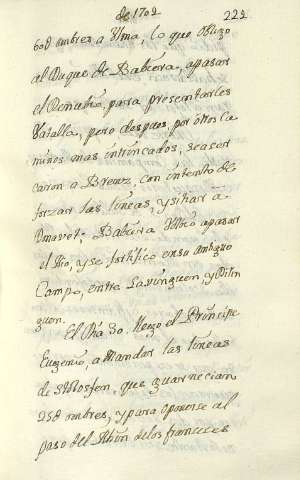 de 1702
222
60∂ ombres a Vlma, lo que obligo
al Duque de Babiera, apasar
el Danubio, para presentarles
Vatalla, pero despues, por otros ca
minos mas intrincados, se acer
caron a Brenz, con intento de
forzar las lineas, y sitiar a
Babiera Volbio apasar
el Rio, y se fortifico en su Antiguo
Campo, entre Lavinguen, y Dilin
guen.
El Dia 30. llego el Principe
Eugenio, a Mandar las lineas
de Stolosfen, que guarnecian
25∂ ombres, y para oponerse al
paso del Rhin de los franceses